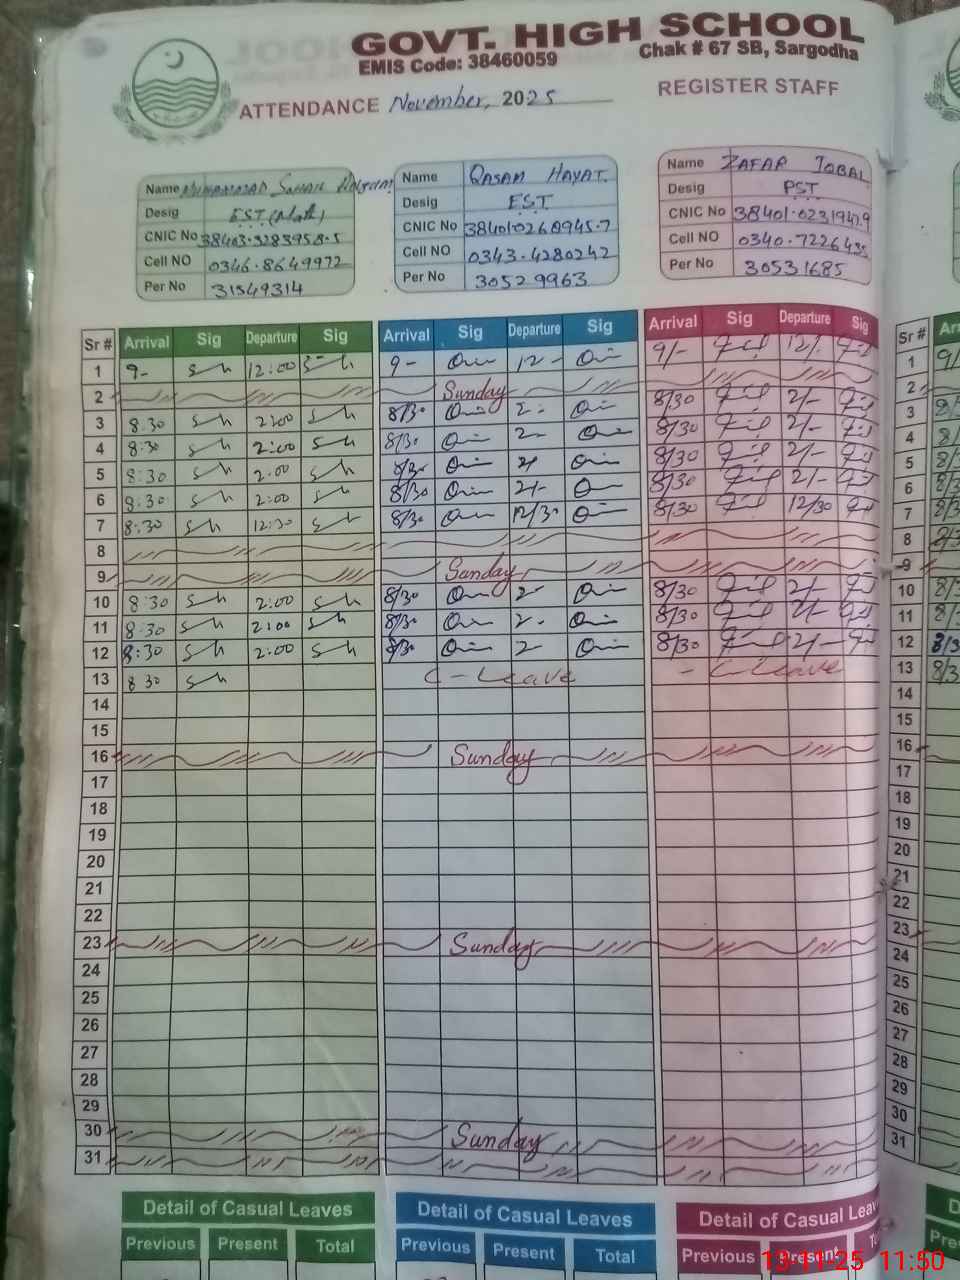 GOVT. HIGH SCHOOL
EMIS Code: 38460059 Chak # 67 SB, Sargodha
ATTENDANCE November, 2025 REGISTER STAFF
Name Muhammad Sohail
Desig EST (Math)
CNIC No 38403-3283958-5
Cell NO 0346-8649972
Per No 31549314
Name QASAM HAYAT
Desig EST
CNIC No 38401-0268945-7
Cell NO 0343-4280242
Per No 30529963
Name ZAFAR IQBAL
Desig PST
CNIC No 38401-0231947-9
Cell NO 0340-7226435
Per No 30531685
Sr # Arrival Sig Departure Sig Arrival Sig Departure Sig Arrival Sig Departure Sig Sr #
1 9- 12:00 9- 12- 9/- 12/- 1
2 Sunday 2
3 8:30 2:00 8/30 2- 8/30 2/- 3
4 8:30 2:00 8/30 2- 8/30 2/- 4
5 8:30 2:00 8/30 2/ 8/30 2/- 5
6 8:30 2:00 8/30 2/- 8/30 2/- 6
7 8:30 12:30 8/30 12/30 8/30 12/30 7
8 8
9 Sunday 9
10 8:30 2:00 8/30 2- 8/30 2/- 10
11 8:30 2:00 8/30 2- 8/30 2/- 11
12 8:30 2:00 8/30 2 8/30 2/- 12
13 8 30 C-Leave - C-Leave 13
14 14
15 15
16 Sunday 16
17 17
18 18
19 19
20 20
21 21
22 22
23 Sunday 23
24 24
25 25
26 26
27 27
28 28
29 29
30 Sunday 30
31 31
Detail of Casual Leaves Detail of Casual Leaves Detail of Casual Leav
Previous Present Total Previous Present Total Previous Present
13-11-25 11:50